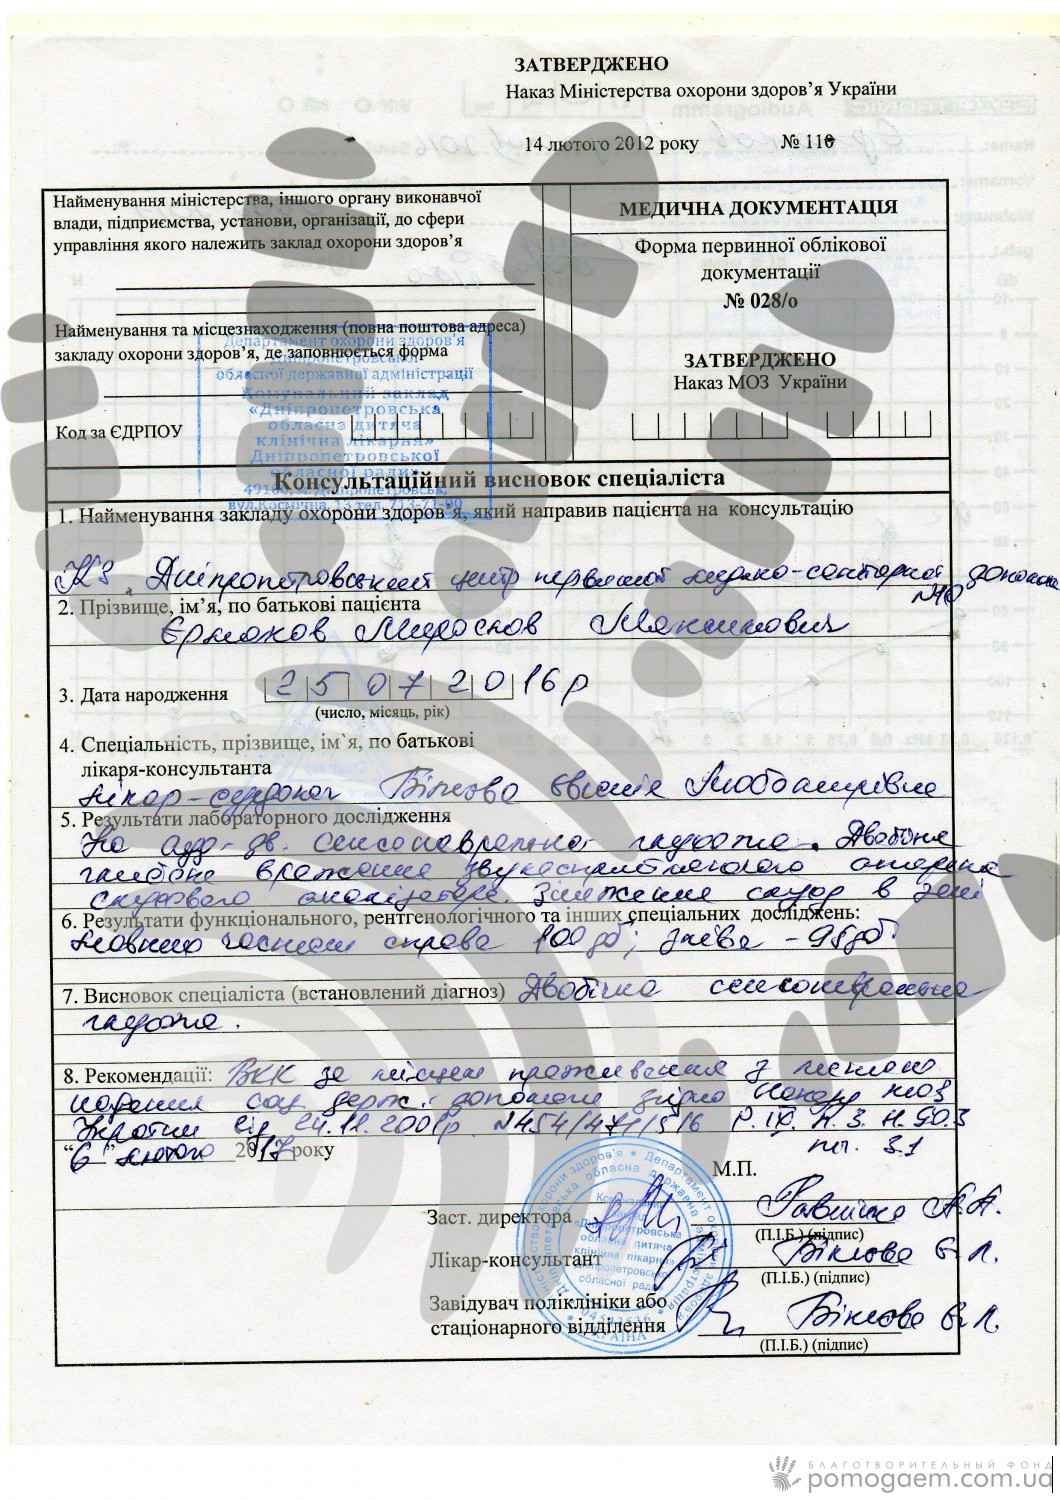 ЗАТВЕРДЖЕНО
Наказ Міністерства охорони здоров’я України
14 лютого 2012 року № 110
Найменування міністерства, іншого органу виконавчої
влади, підприємства, установи, організації, до сфери
управління якого належить заклад охорони здоров’я
Найменування та місцезнаходження (повна поштова адреса)
закладу охорони здоров’я, де заповнюється форма
Код за ЄДРПОУ
МЕДИЧНА ДОКУМЕНТАЦІЯ
Форма первинної облікової
документації
№ 028/о
ЗАТВЕРДЖЕНО
Наказ МОЗ України
Департамент охорони здоров'я
Дніпропетровської
обласної державної адміністрації
Комунальний заклад
«Дніпропетровська
обласна дитяча
клінічна лікарня»
Дніпропетровської
обласної ради»
49100, м. Дніпропетровськ,
вул.Космічна, 13 тел. 713-71-00
Консультаційний висновок спеціаліста
1. Найменування закладу охорони здоров’я, який направив пацієнта на консультацію
КЗ Дніпропетровський центр первинної медико-санітарної допомоги
№10
2. Прізвище, ім’я, по батькові пацієнта
Єрмаков Мирослав Максимович
3. Дата народження 25 07 2016р
(число, місяць, рік)
4. Спеціальність, прізвище, ім`я, по батькові
лікаря-консультанта
Лікар-сурдолог Білкова Євгенія
5. Результати лабораторного дослідження
дв. сенсоневральна глухота. Двобічне
глибоке враження звукосприймаючого апарата
слухового аналізатора. Зниження слуху в зоні
6. Результати функціонального, рентгенологічного та інших спеціальних досліджень:
мовних частот справа 100 дб; зліва - 98дб
7. Висновок спеціаліста (встановлений діагноз) Двобічна сенсоневральна
глухота.
8. Рекомендації: ВКК за місцем проживання з питання
соц. держ. допомоги згідно Наказу МОЗ
України від 24.11.2001р №454/471/516 Р. IX. п. 3. Н. 90.3
пп. 3.1
“6” лютого 2017 року
М.П.
Заст. директора А.А.
(П.І.Б.) (підпис)
Лікар-консультант Білкова Є.Л.
(П.І.Б.) (підпис)
Завідувач поліклініки або
стаціонарного відділення Білкова Є.Л.
(П.І.Б.) (підпис)
Комунальний
заклад
«Дніпропетровська
обласна дитяча
клінічна лікарня»
Дніпропетровської
обласної ради»
УКРАЇНА
БЛАГОТВОРИТЕЛЬНЫЙ ФОНД
pomogaem.com.ua